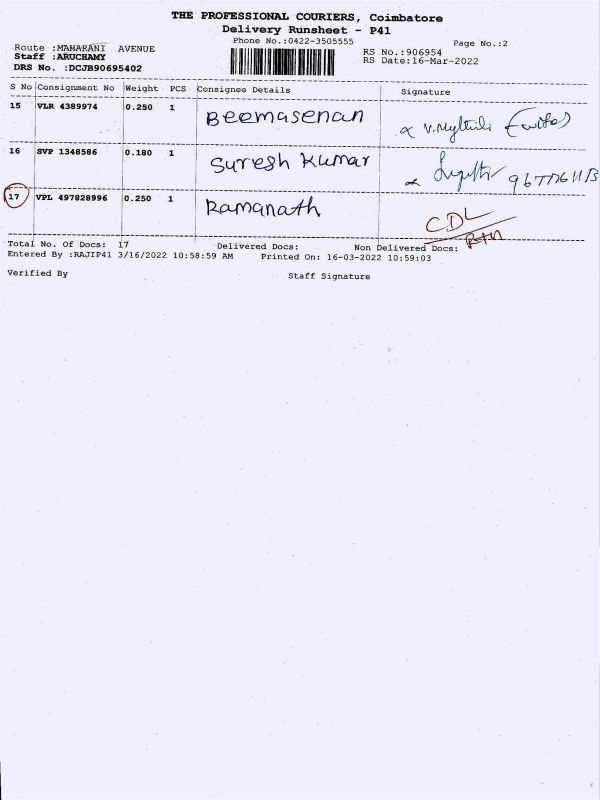 THE PROFESSIONAL COURIERS, Coimbatore
Delivery Runsheet - P41
Phone No.:0422-3505555
Page No.:2
Route :MAHARANI AVENUE
RS No.:906954
Staff :ARUCHAMY
RS Date:16-Mar-2022
DRS No. :DCJB90695402
S No Consignment No Weight PCS Consignee Details Signature
15 VLR 4389974 0.250 1 Beemasenan V.Mythili (wife)
16 SVP 1348586 0.180 1 Suresh Kumar
17 VPL 497828996 0.250 1 Ramanath CDL
RTN
Total No. Of Docs: 17 Delivered Docs: Non Delivered Docs:
Entered By :RAJIP41 3/16/2022 10:58:59 AM Printed On: 16-03-2022 10:59:03
Verified By Staff Signature